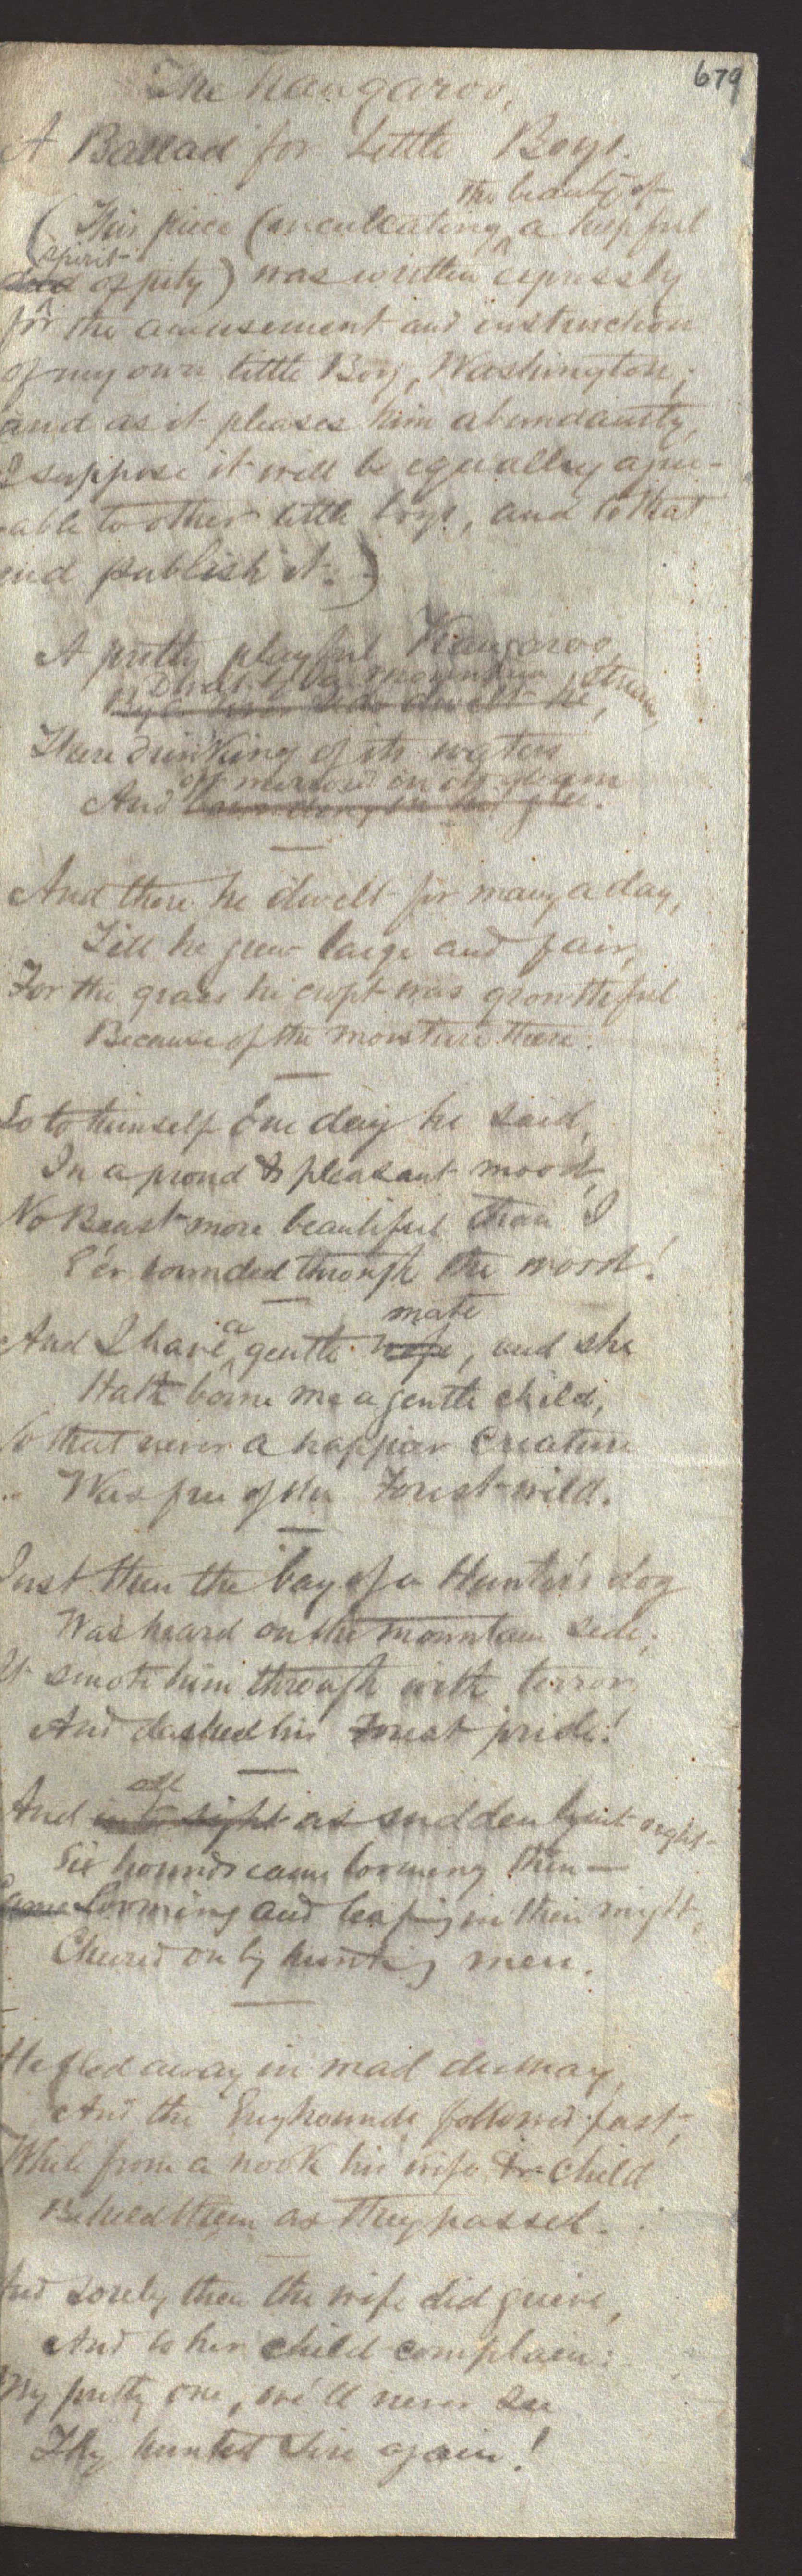 679
The Kangaroo,
A Ballad for Little Boys.
The beauty of
(This piece (inculcating a helpful
spirit
of pity) was written expressly
for the amusement and instruction
of my own little Boy, Washington;
and as it pleases him abundantly,
I suppose it will be equally agree-
able to other little boys, and to that
end publish it.)
A pretty playful Kangaroo
Dwelt by a mountain stream,
By a dwelt he,
There drinking of its waters
oft mirrored in its gleam
And glee.
And there he dwelt for many a day,
Till he grew large and fair,
For the grass he cropt was growthful
Because of the moisture there.
So to himself one day he said,
In a proud & pleasant mood,
No Beast more beautiful than I
E'er bounded through the wood!
a mate
And I have gentle wife, and she
Hath borne me a gentle child,
So that never a happier Creature
Was free of the Forest wild.
Just then the bay of a Hunter's dog
Was heard on the mountain side;
It smote him through with terror
And dashed his Forest pride!
all
And into sight as suddenly in sight
Six hounds came looming then—
Came Looming and leaping in their might,
Cheered on by hunting men.
He fled away in mad dismay,
And the Greyhounds followed fast,
While from a nook his wife & child
Beheld them as they passed.
And sorely then the wife did grieve,
And to her child complain:
My pretty one, we'll never see
Thy hunted Sire again!